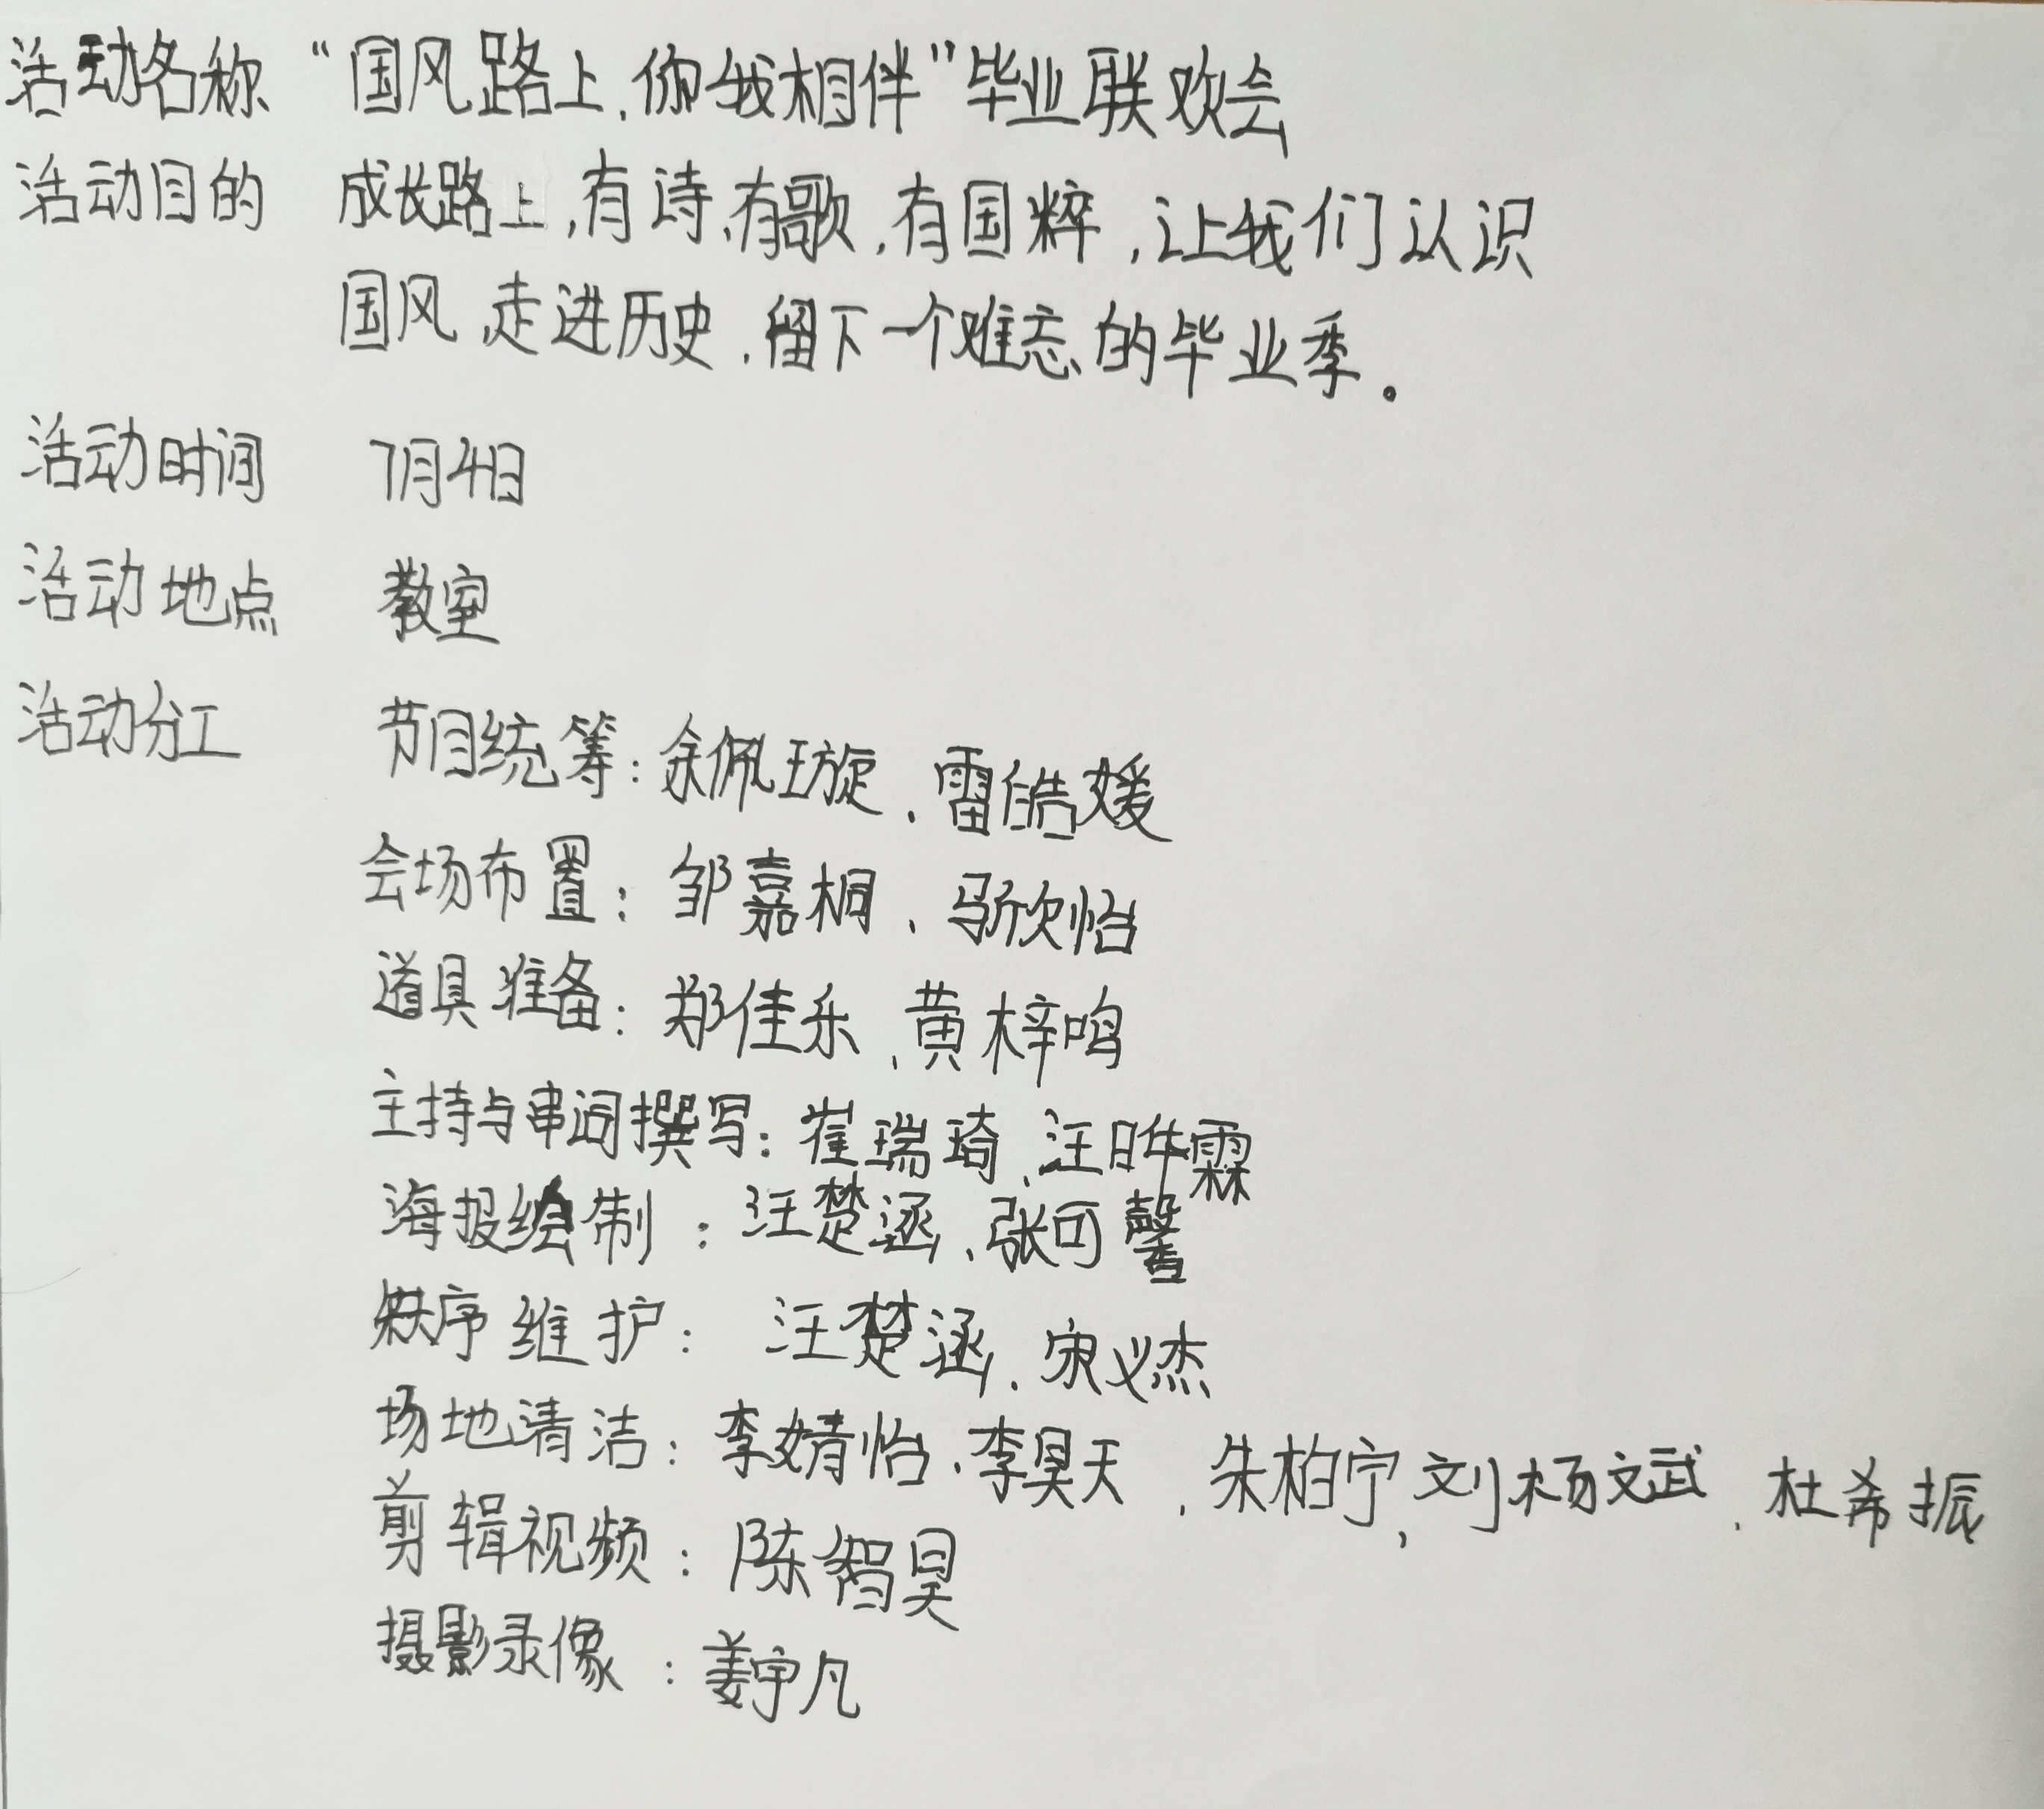 活动名称 “国风路上,你我相伴”毕业联欢会
活动目的 成长路上,有诗、有歌,有国粹,让我们认识
国风,走进历史,留下一个难忘的毕业季。
活动时间 7月4日
活动地点 教室
活动分工 节目统筹:余佩璇、雷皓媛
会场布置:邹嘉桐、马欣怡
道具准备:郑佳乐、黄梓鸣
主持与串词撰写:崔瑞琦、汪昨霖
海报绘制:汪楚涵、张可馨
秩序维护:汪楚涵、宋义杰
场地清洁:李婧怡、李昊天、朱柏宁、刘杨文武、杜希振
剪辑视频:陈智昊
摄影录像:姜宇凡